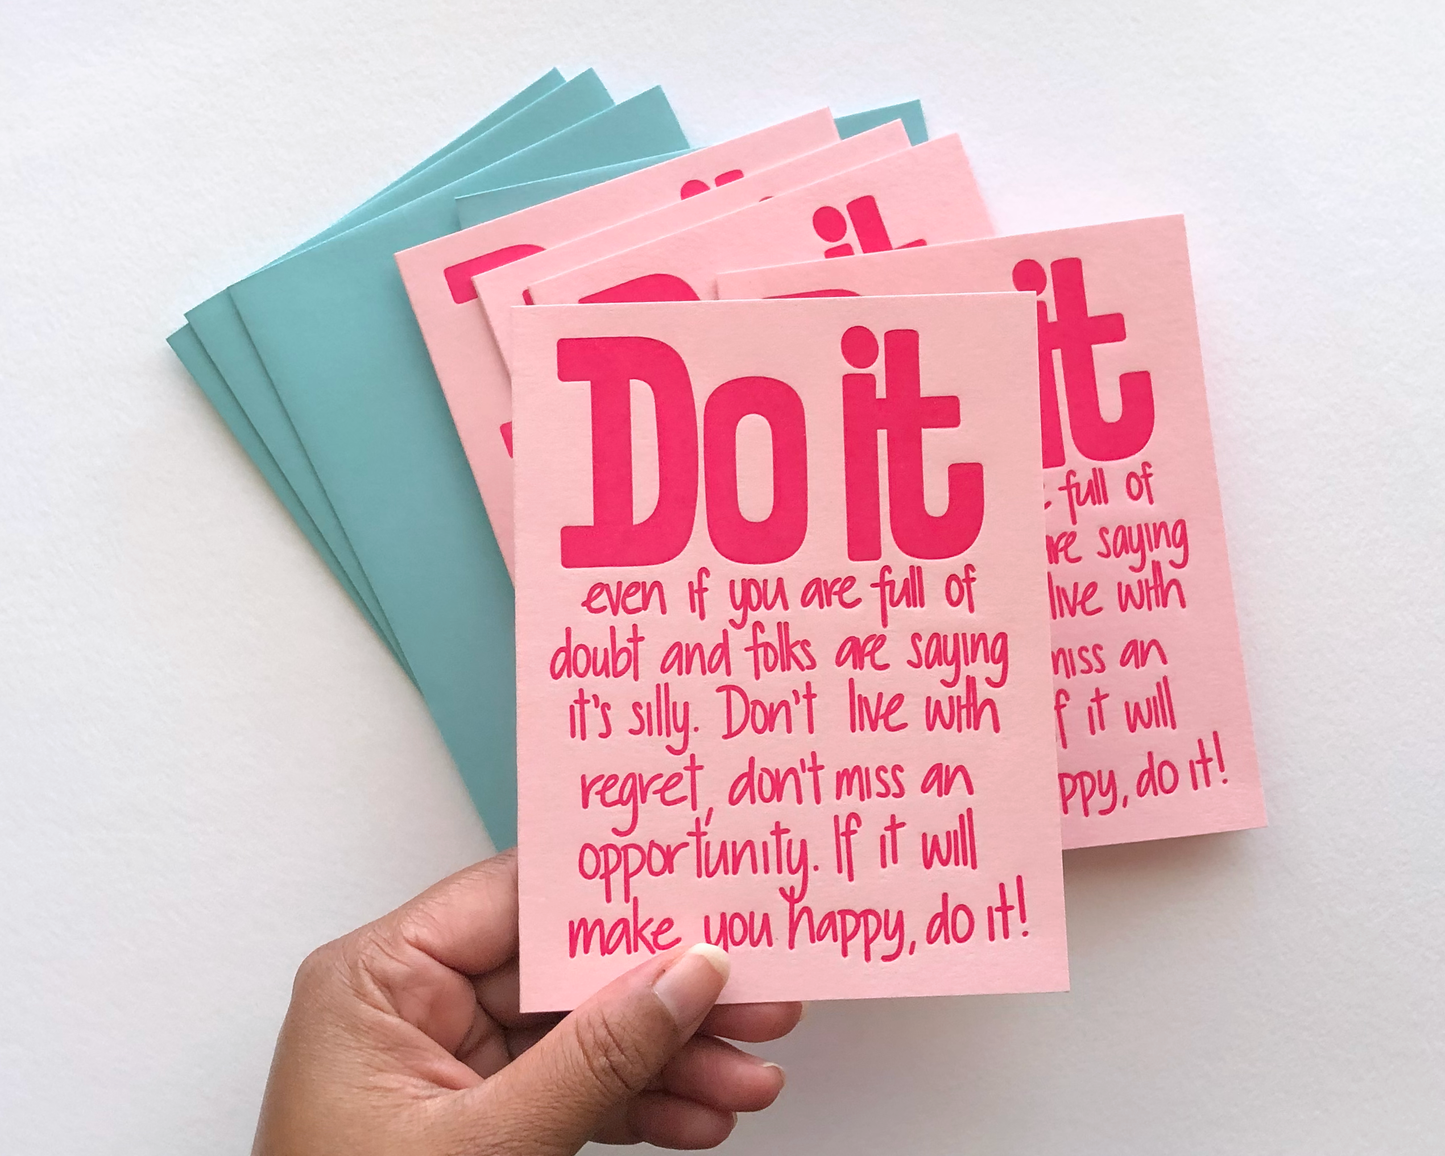 Do it
even if you are full of
doubt and folks are saying
it's silly. Don't live with
regret, don't miss an
opportunity. If it will
make you happy, do it!
it
full of
are saying
live with
miss an
if it will
happy, do it!
it